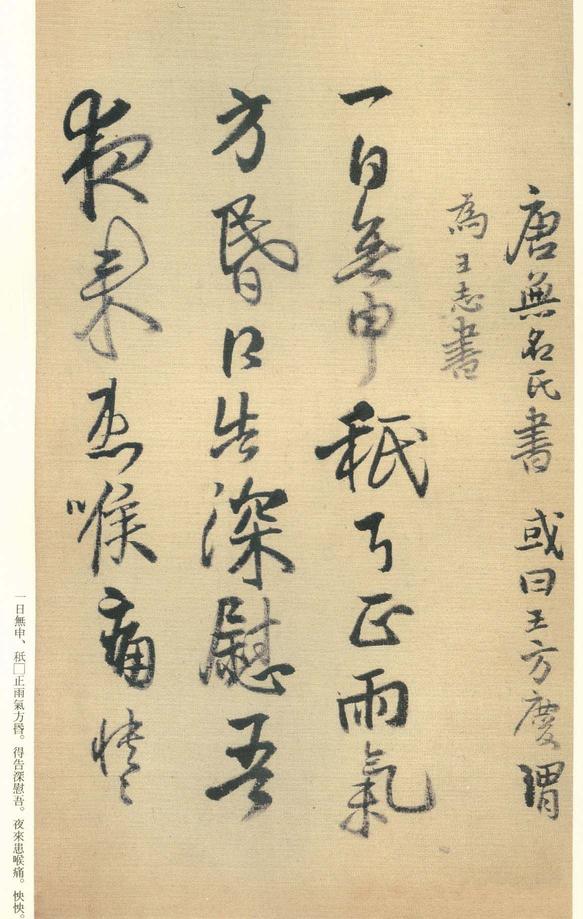 唐無名氏書 或曰王方慶謂
為王志書
一日無申秖丂正雨氣
方昏得告深慰吾
夜来患喉痛怏〻
一日無申、秖□止雨氣方昏。得告深慰吾。夜來患喉痛。怏怏。